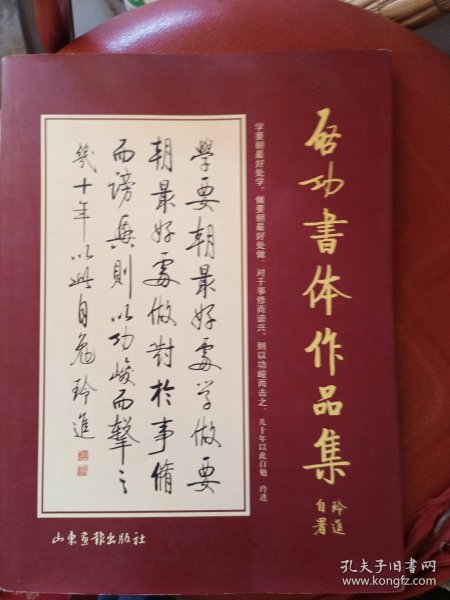 启功書体作品集
玲進
自署
学要朝最好处学，做要朝最好处做。对于事修而谤兴，则以功峻而击之。几十年以此自勉 玲进
學要朝最好處学做要
朝最好處做對於事脩
而謗興則以功峻而擊之
幾十年以此自勉玲進
山東画報出版社
孔夫子旧书网
www.kongfz.com